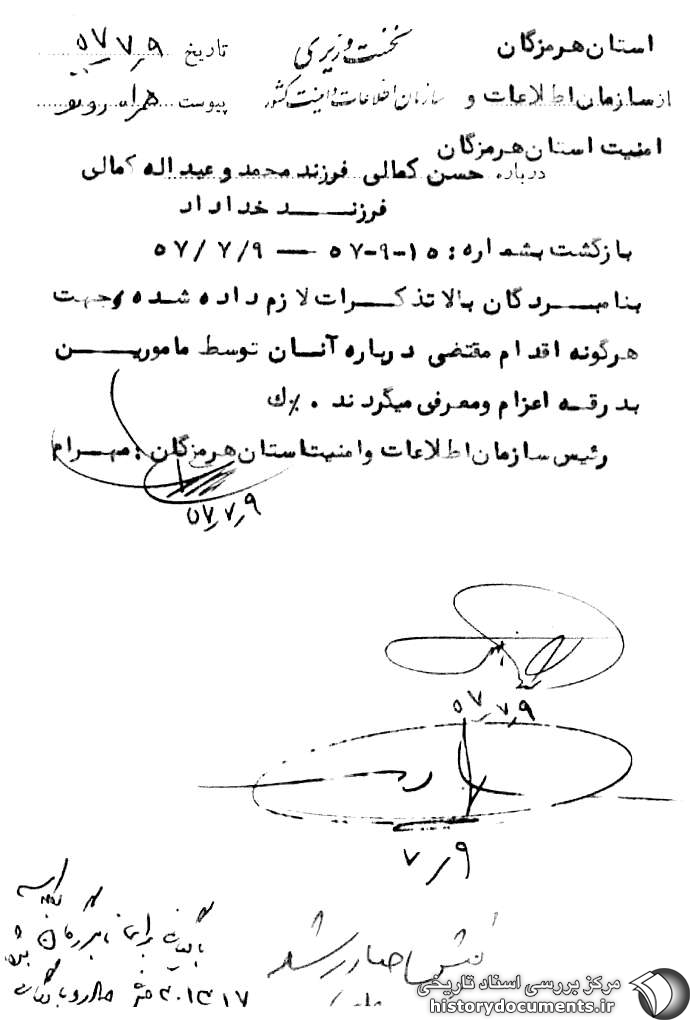 استان هرمزگان
نخست وزیری
تاریخ ۵۷٫۷٫۹
از سازمان اطلاعات و
سازمان اطلاعات و امنیت کشور
پیوست همراه
امنیت استان هرمزگان
درباره حسن کمالی فرزند محمد و عبداله کمالی
فرزند خداداد
بازگشت بشماره : ۱۵-۹-۵۷ — ۵۷/۷/۹
بنامبردگان بالا تذکرات لازم داده شده وجهت
هرگونه اقدام مقتضی درباره آنان توسط مامورین
بدرقه اعزام ومعرفی میگردند . ٪ك
رئیس سازمان اطلاعات و امنیت استان هرمزگان : مهرام
۵۷٫۷٫۹
۵۷٫۷٫۹
۷٫۹
مرکز بررسی اسناد تاریخی
historydocuments.ir